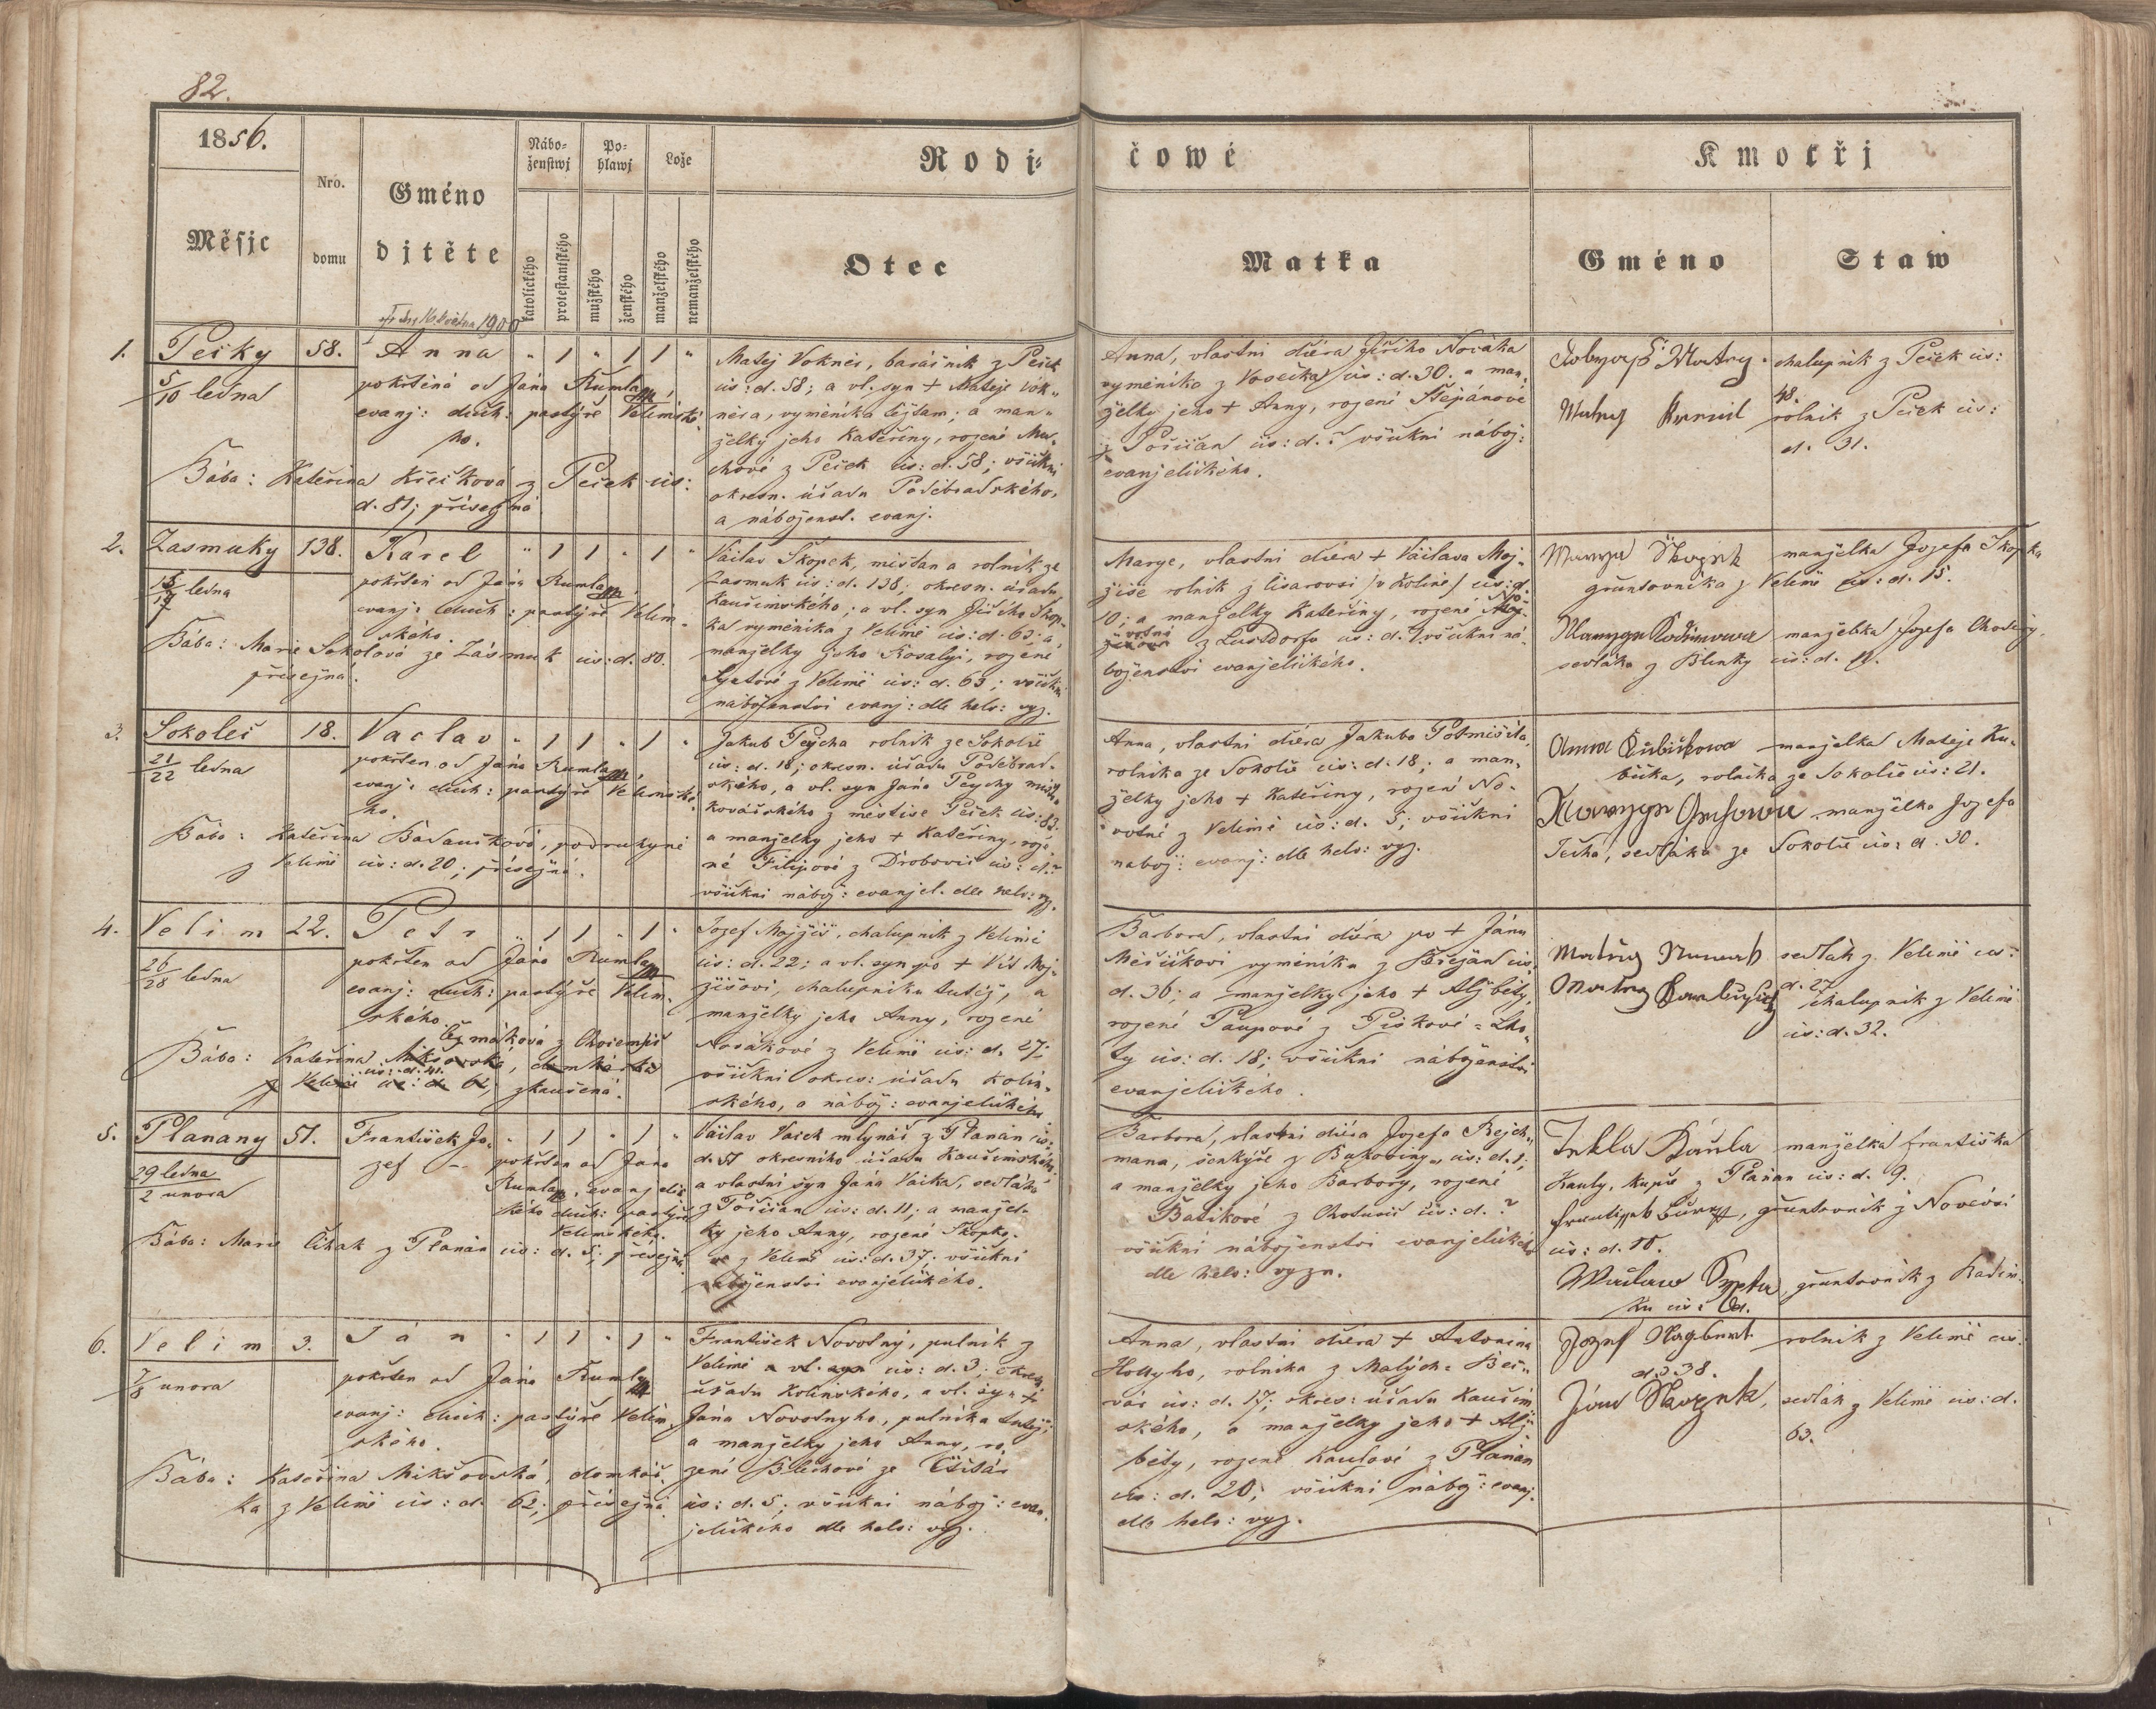 82.
1856.
Měsjc
Nro. domu
Gméno djtěte
Nábo-ženstwj
Po-hlawj
Lože
katolického
protestantského
mužského
ženského
manželského
nemanželského
Rodi-
čowé
Otec
Matka
Kmotři
Gméno
Staw
1.
Pečky
58.
Anna
" 1 " 1 1 "
5/10 ledna
pokřtěná od Jána Rumla
evanj: duch: pastýře Velimské-
ho.
Bába: Kateřina Křečková z Peček čís:
d. 81; přísežná
Matěj Vokněr, baráčník z Peček
čís: d. 58; a vl. syn + Matěje Vok-
něra, výměníka tejtam; a man-
želky jeho Kateřiny, rozené Ma-
chové z Peček čís: d. 58; všickni
okresn. úřadu Poděbradského,
a náboženst. evanj.
Anna, vlastní dcéra Jiřího Nováka
výměníka z Vosečka čís: d. 30. a man-
želky jeho + Anny, rozené Štěpánové
z Poříčan čís: d. ? všickni nábož:
evanjelického.
chalupník z Peček čís:
48.
rolník z Peček čís:
d. 31.
2.
Zasmuky
138.
Karel
" 1 1 " 1 "
ledna
pokřten od Jána Rumla
evanj: duch: pastýře Velim-
ského.
Bába: Marie Sokolová ze Zásmuk čís: d. 80.
přísežná.
Václav Škopek, mišťan a rolník ze
Zasmuk čís: d. 138; okresn. úřadu
Kouřimského; a vl. syn Jiřího Škop-
ka výměníka z Velimě čís: d. 63; a
manželky jeho Rosalyi, rozené
z Velimě čís: d. 63; všickni
náboženství evanj: dle helv: vyz.
Marye, vlastní dcéra + Václava Moj-
žíše rolník z Lisarovsi /v Kolíně/ čís: d.
10; a manželky Kateřiny, rozené
z Lustdorfu čís: d. 7, všickni ná-
boženství evanjelického.
manželka Jozefa Škopka
gruntovníka z Velimě čís: d. 15.
manželka Jozefa
sedláka z Blinky čís: d. 11.
3.
Sokoleč
18.
Vaclav
" 1 1 " 1 "
21/22 ledna
pokřten od Jána Rumla
evanj: duch: pastýře Velimské-
ho.
Bába: Kateřina Badoučková, podruhyně
z Velimě čís: d. 20; přísežná.
Jakub Pejcha rolník ze Sokolče
čís: d. 18; okresn. úřadu Poděbrad-
ského, a vl. syn Jána Pejchy mistra
kovářského z městise Peček čís: 83.
a manželky jeho + Kateřiny, roze-
né Filipové z Drobovic čís: d. ?
všickni nábož: evanjel. dle helv: vyz.
Anna, vlastní dcéra Jakuba Potměšila,
rolníka ze Sokolče čís: d. 18; a man-
želky jeho + Kateřiny, rozen No-
votné z Velimě čís: d. 5; všickni
nabož: evanj: dle helv: vyz.
Anna Kubíčkowa manželka Matěje Ku-
bíčka, rolníka ze Sokolče čís: 21.
manželka Jozefa
sedláka ze Sokolče čís: d. 30.
4.
Velim
22.
Petr
" 1 1 " 1 "
26/28 ledna
pokřten od Jána Rumla
evanj: duch: pastýře Velim-
ského.
Bába: Kateřina Mikšovská, domkářka
z Velimě čís: d. 62, zkoušená.
Jozef Mojžíš, chalupník z Velimě
čís: d. 22; a vl. syn po + Vít Moj-
žíšovi, chalupníku tutéž, a
manželky jeho Anny, rozené
Nosákové z Velimě čís: d. 27;
všickni okres: úřadu Kolín-
ského, a nábož: evanjelického
Barbora, vlastní dcéra po + Jánu
Měšičkovi výměníku z čís:
d. 36; a manželky jeho + Alžběty,
rozené Paupové z Pískové-Lho-
ty čís: d. 18; všickni náboženství
evanjelického.
sedlák z Velimě čís:
d. 27
chalupník z Velimě
čís: d. 32.
5.
Planany
51.
František Jo-
zef
" 1 1 " 1 "
29 ledna
2 unora
pokřten od Jana
Rumla, evanjelic-
kého duch: pastýře
Velimského.
Bába: Marie Čihak z Planán čís: d. 5; přísežná
Václav Vacek mlynář z Planán čís:
d. 51 okresního úřadu Kouřimského;
a vlastní syn Jána Vacka, sedláka
z Poříčan čís: d. 11; a manžel-
ky jeho Anny, rozené Škopko-
vé z Velimě čís: d. 37; všickni
náboženství evanjelického.
Barbora, vlastní dcéra Jozefa Rejch-
mana, šenkýře z Bukoviny čís: d. 1;
a manželky jeho Barbory, rozené
Bačíkové z Chotusic čís: d. ?
všickni náboženství evanjelického
dle helv: vyzn.
Tekla Kaula manželka františka
Kauly, kupce z Planan čís: d. 9.
gruntovník z Novévsi
čís: d. 10.
gruntovník z Radim-
ku čís: d.
6.
Velim
3.
Ján
" 1 1 " 1 "
7/8 unora
pokřten od Jána Rumla
evanj: duch: pastýře Velim-
ského.
Bába: Kateřina Mikšovská, domkář-
ka z Velimě čís: d. 62; přísežná.
František Novotný, pulník z
Velimě a vl. syn čís: d. 3; okres:
úřadu Kolínského, a vl. syn +
Jána Novotnýho, pulníka tutéž;
a manželky jeho Anny, ro-
zené Blechové ze Cčítár
čís: d. 5; všickni nábož: evan-
jelického dle helv: vyz.
Anna, vlastní dcéra + Antonína
Hollyho, rolníka z Malých-Beč-
vár čís: d. 17; okres: úřadu Kouřim-
ského, a manželky jeho + Alž-
běty, rozené Kaulové z Planán
čís: d. 20; všickni nábož: evanj.
dle helv: vyz.
rolník z Velimě čís:
d. 38.
Ján Škopek, sedlák z Velimě čís: d.
63.